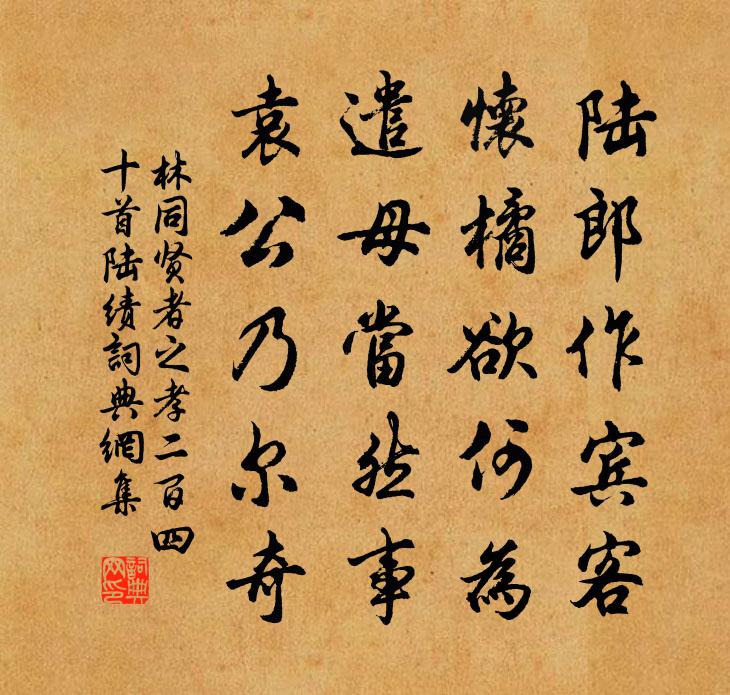 陆郎作宾客
懷橘欲何為
遣母當然事
袁公乃尔奇
林同贤者之孝二百四
十首陆绩詞典網集
詞典
网印